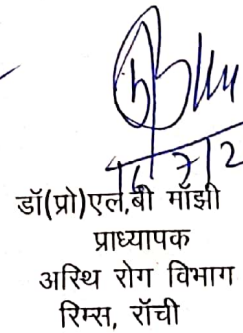 16/7/2
डॉ(प्रो)एल,बी मॉझी
प्राध्यापक
अस्थि रोग विभाग
रिम्स, रॉची